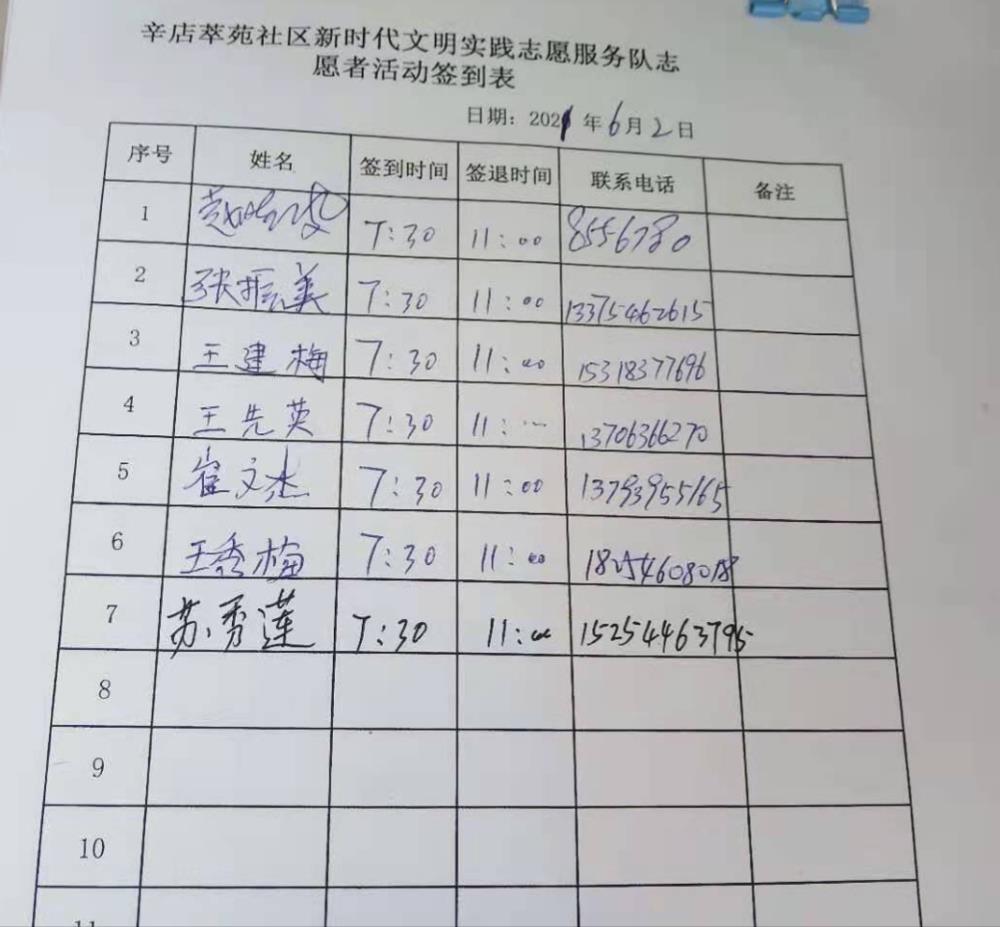 辛店萃苑社区新时代文明实践志愿服务队志
愿者活动签到表
日期：2021年6月2日
序号 姓名 签到时间 签退时间 联系电话 备注
1 7:30 11:00 8556780
2 张振美 7:30 11:00 13375462615
3 王建梅 7:30 11:00 15318377696
4 王先英 7:30 11:00 13706366270
5 崔文杰 7:30 11:00 13793955165
6 王秀梅 7:30 11:00
7 苏秀莲 7:30 11:00 15254463795
8
9
10
11